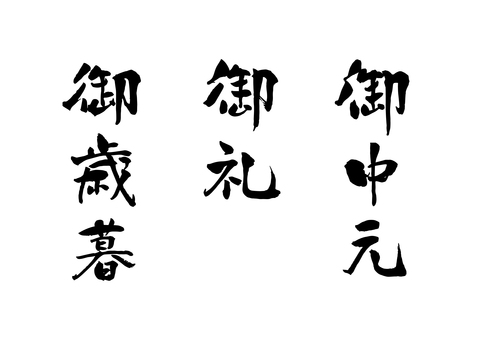 御中元
御礼
御歳暮